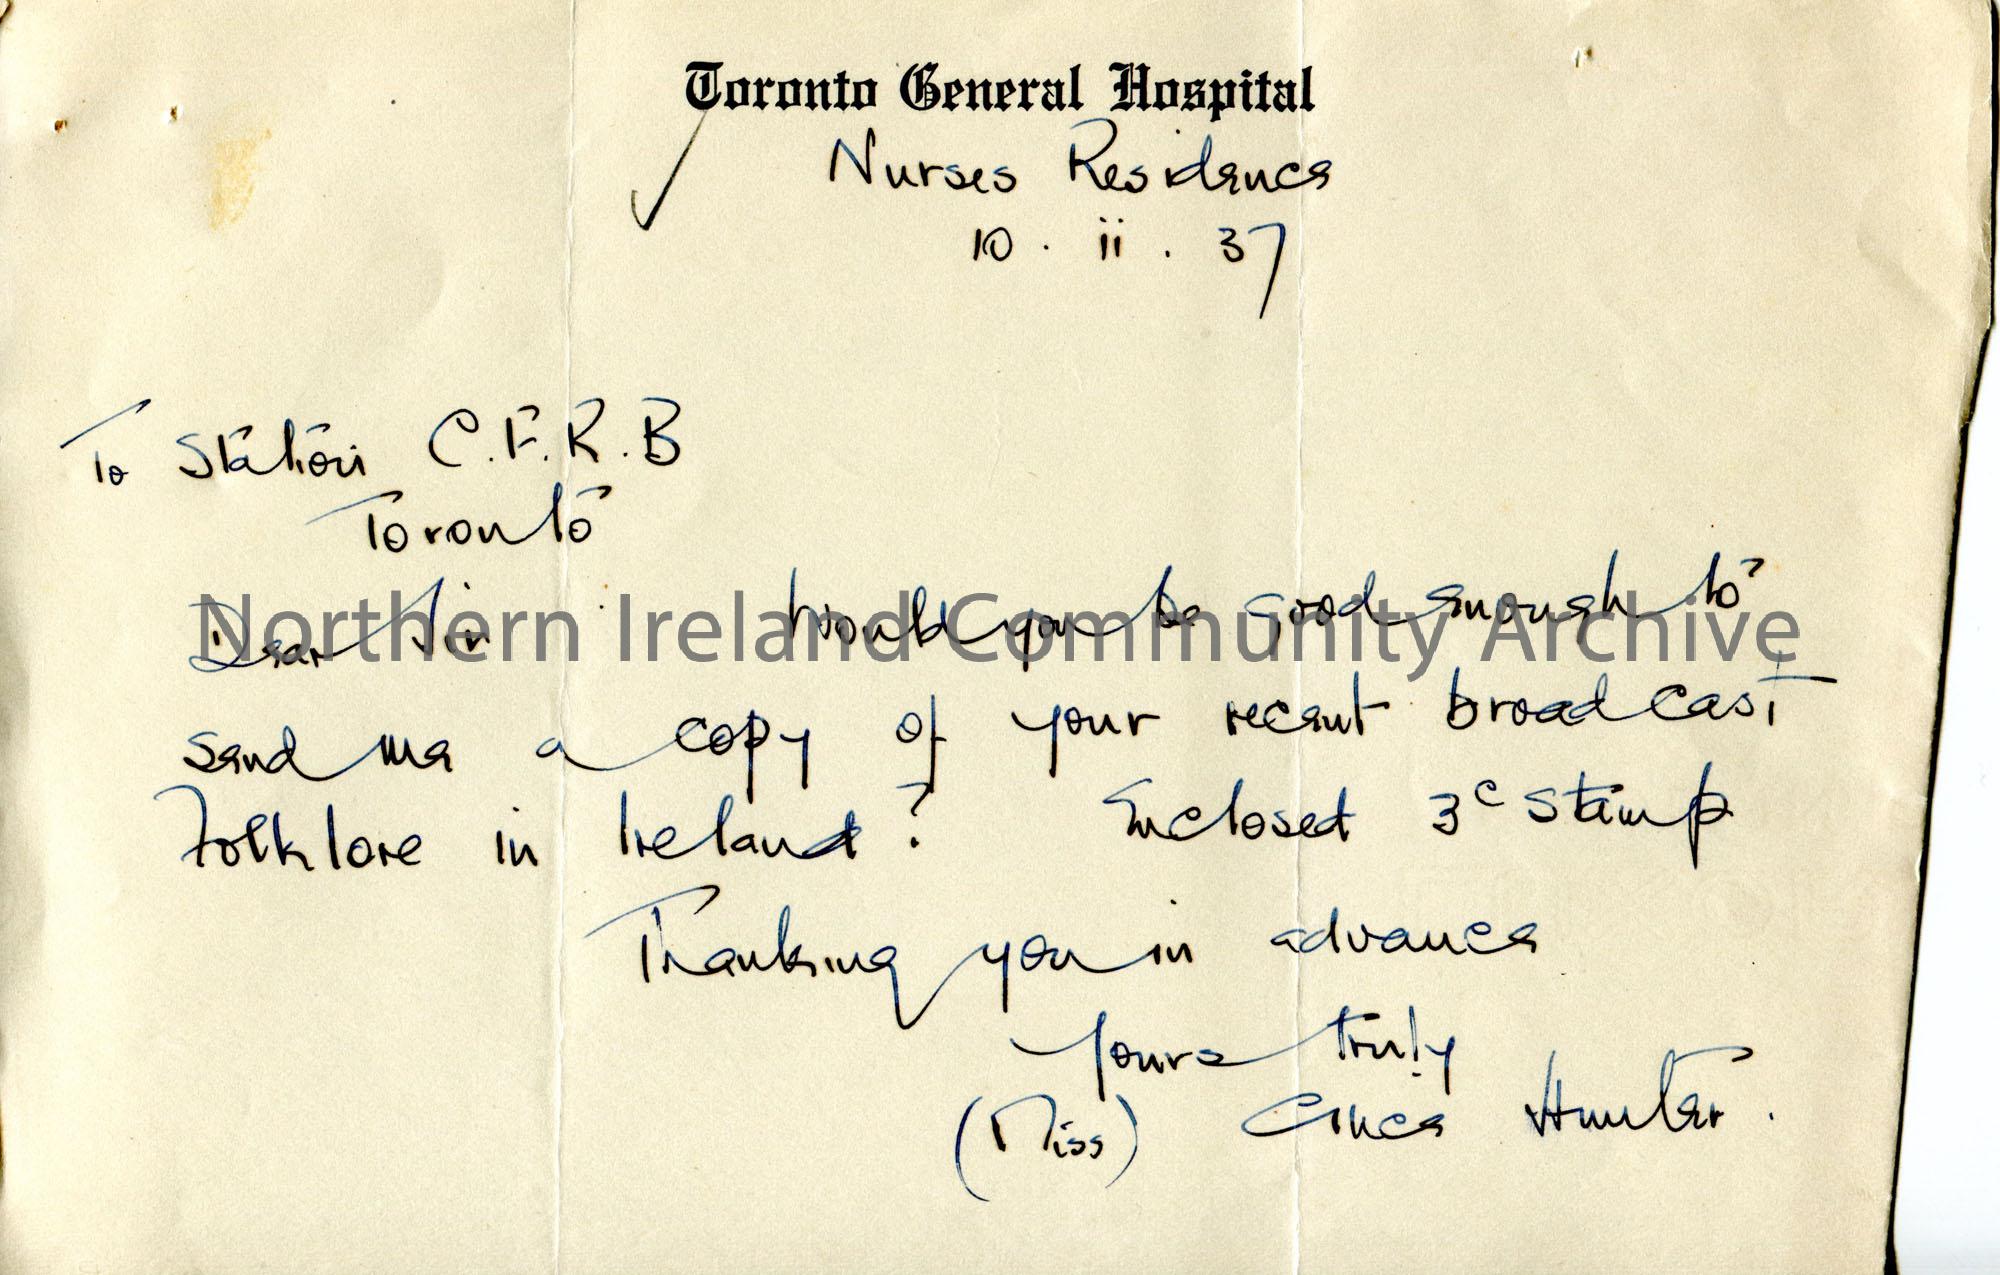 Toronto General Hospital
Nurses Residence
10 . ii . 37
To Station C.F.R.B
Toronto
Dear Sir Would you be good enough to
Northern Ireland Community Archive
send me a copy of your recent broadcast
Folk lore in Ireland? Enclosed 3c stamp
Thanking you in advance
Yours truly
(Miss) Hunter.